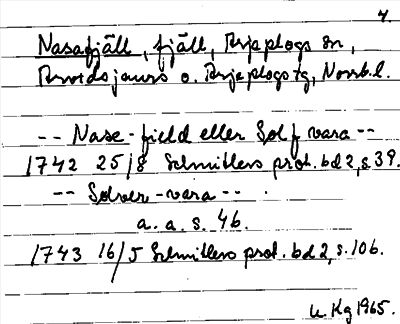 4.
Nasafjäll, fjäll, Arjeplogs sn,
Arvidsjaurs o. Arjeplogs tg, Norrb.l.
-- Nase-field eller Solfvara --
1742 25/8 Schnitlers prot. bd 2, s. 39.
-- Solver-vara --
a. a. s. 46.
1743 16/5 Schnitlers prot. bd 2, s. 106.
Kg 1965.